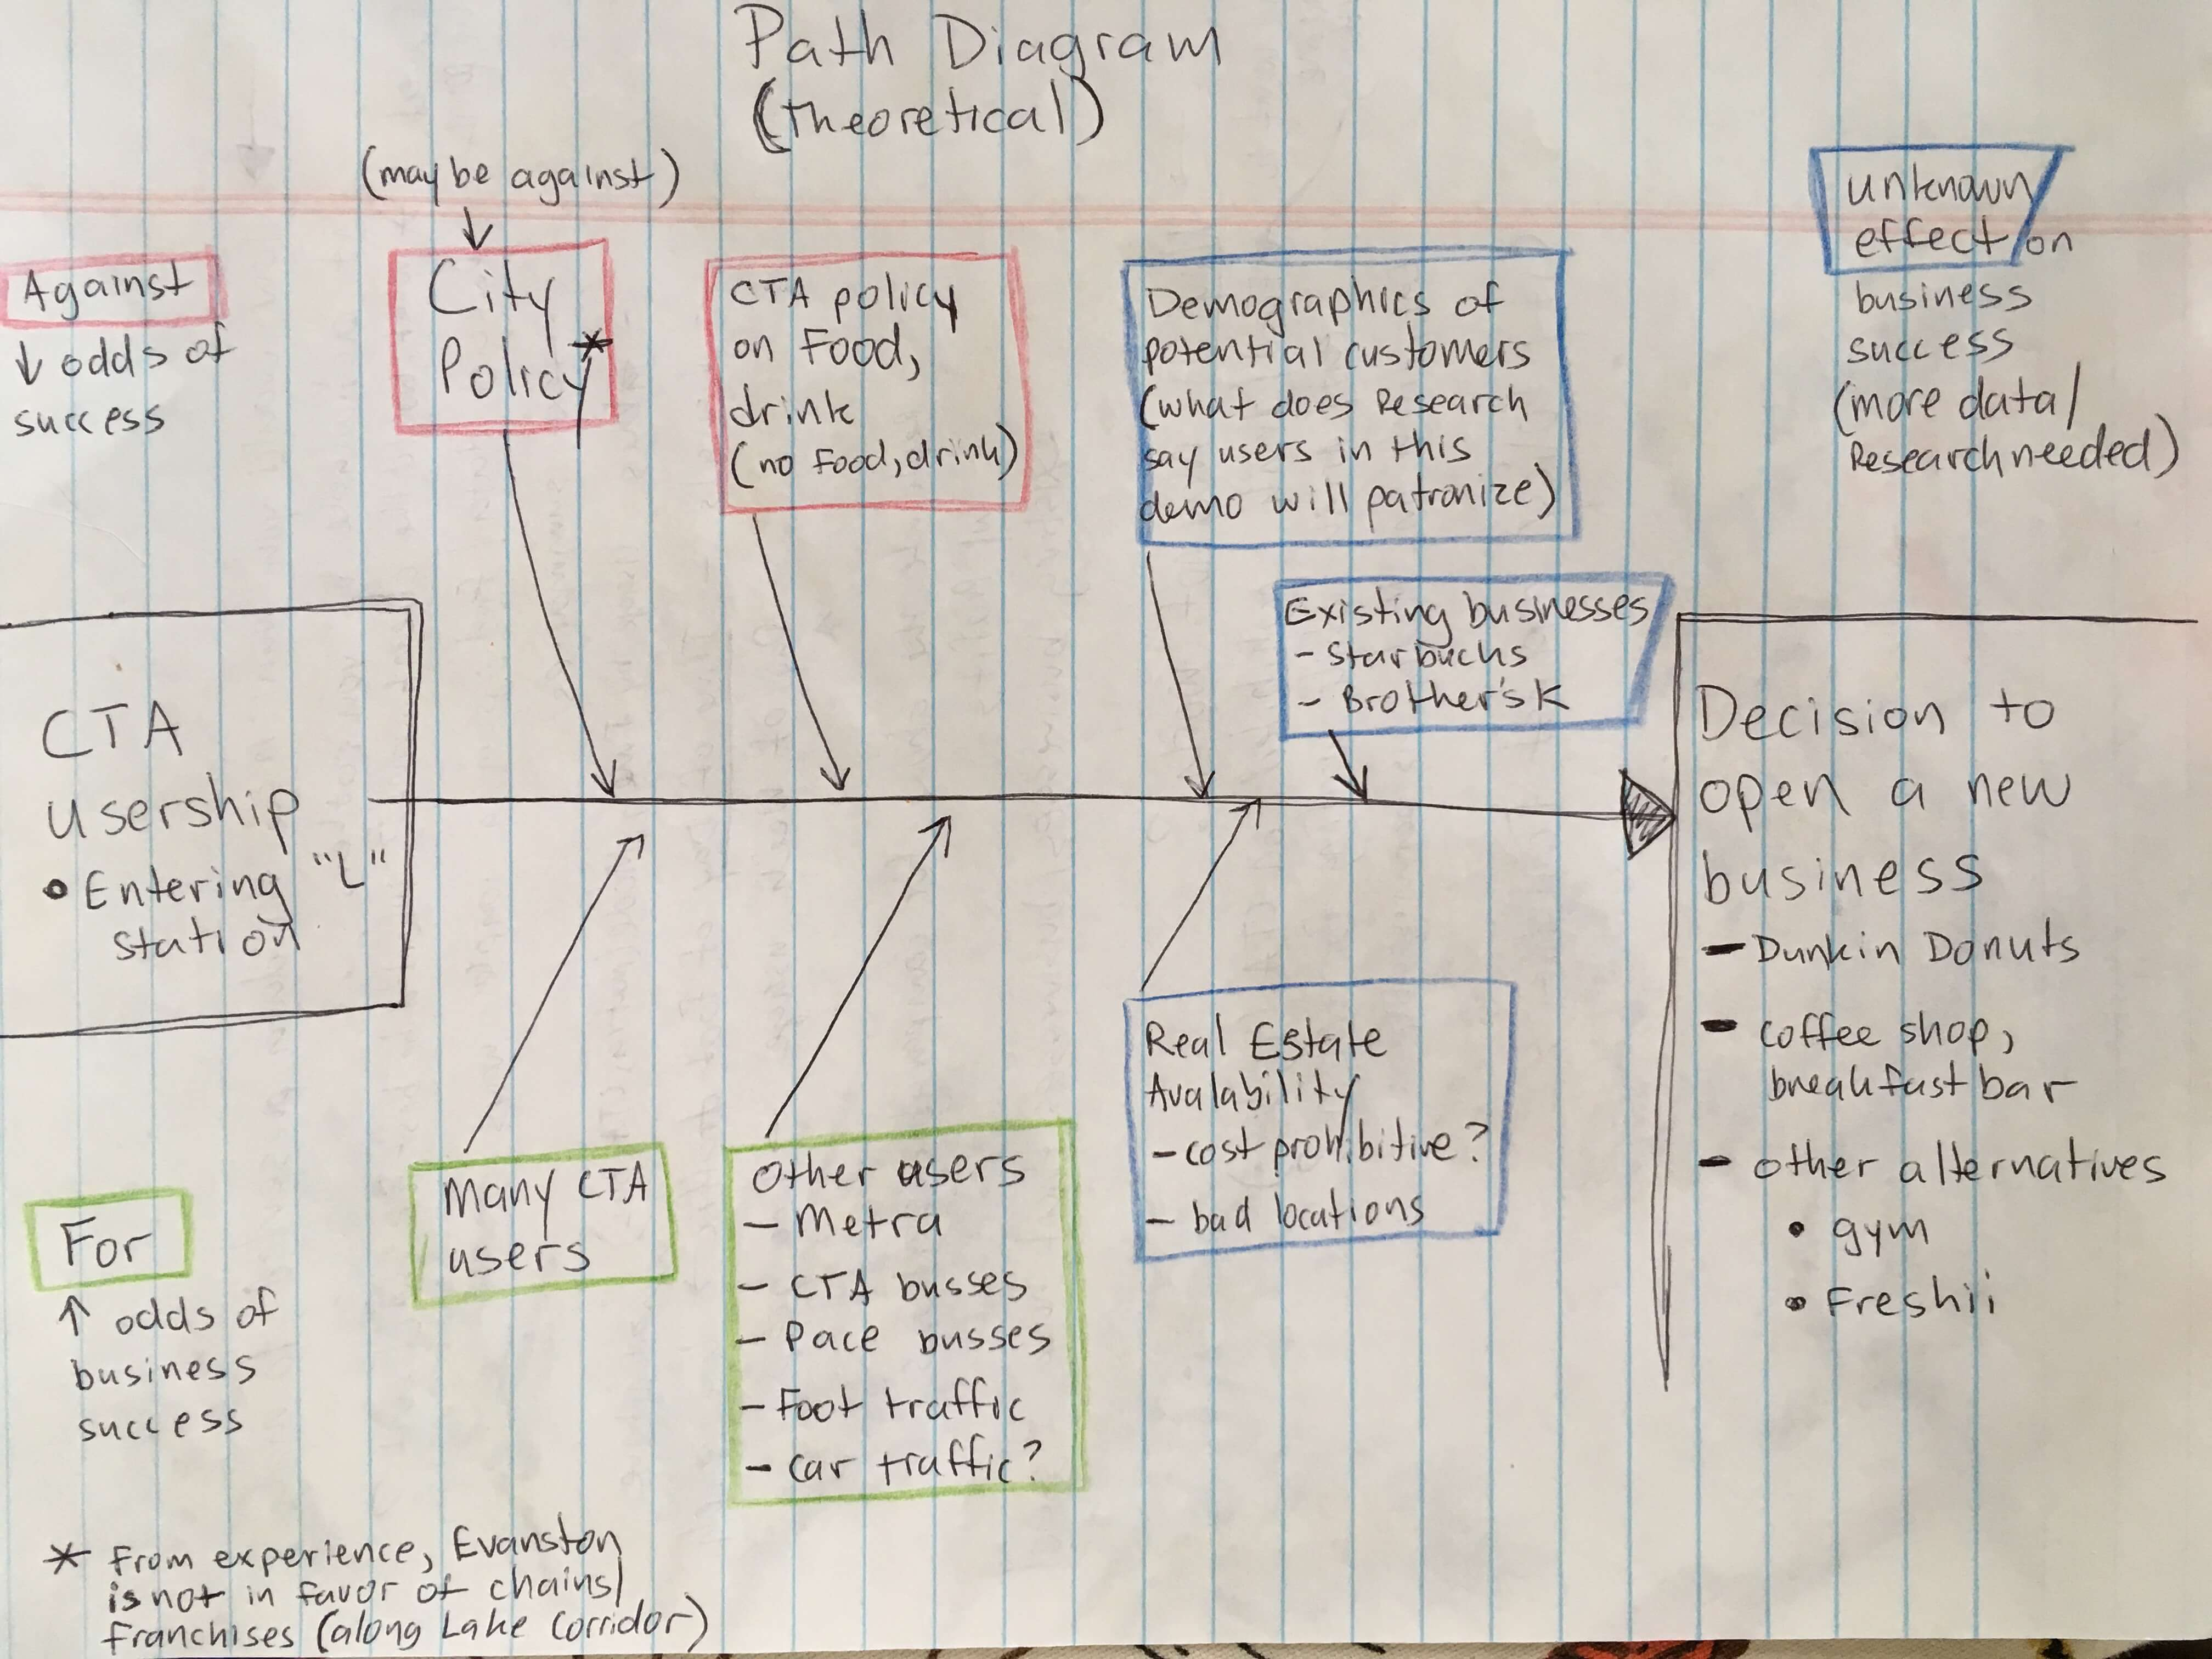 Path Diagram
(Theoretical)
(may be against)
↓
Against
↓ odds of
success
City
Policy*
CTA policy
on Food,
drink
(no Food, drink)
Demographics of
potential customers
(what does Research
say users in this
demo will patronize)
unknown
effect on
business
success
(more data/
Research needed)
Existing businesses
- Starbucks
- Brother's K
CTA
usership
• Entering "L"
station
Decision to
open a new
business
- Dunkin Donuts
- coffee shop,
breakfast bar
- other alternatives
• gym
• Freshii
For
↑ odds of
business
success
Many CTA
users
Other users
- Metra
- CTA busses
- Pace busses
- Foot traffic
- car traffic?
Real Estate
Avalability
- cost prohibitive?
- bad locations
* From experience, Evanston
is not in favor of chains/
franchises (along Lake Corridor)